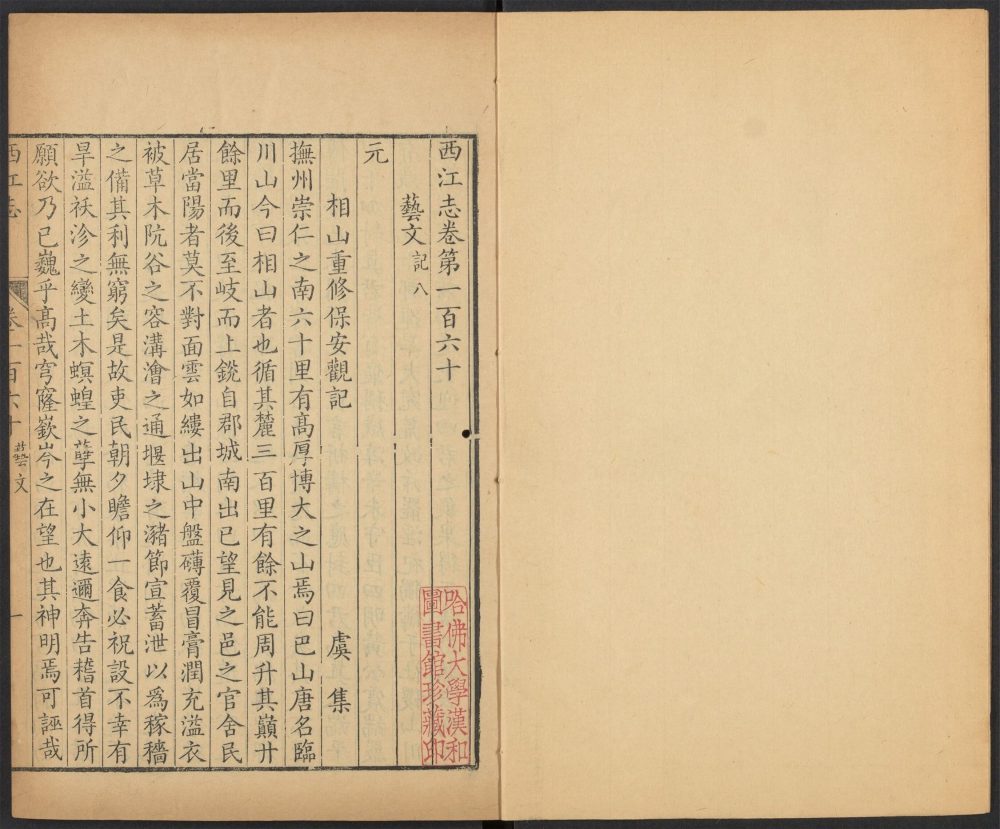 西江志卷第一百六十
藝文 記八
元
相山重修保安觀記 虞集
撫州崇仁之南六十里有高厚博大之山焉曰巴山唐名臨
川山今曰相山者也循其麓三百里有餘不能周升其巔廾
餘里而後至岐而上鋭自郡城南出已望見之邑之官舍民
居當陽者莫不對面雲如縷出山中盤礴覆冒膏潤充溢衣
被草木阬谷之容溝澮之通堰埭之瀦節宣蓄泄以爲稼穡
之備其利無窮矣是故吏民朝夕瞻仰一食必祝設不幸有
旱溢祅沴之變土木螟蝗之孽無小大遠邇奔告稽首得所
願欲乃已巍乎高哉穹窿嶔岑之在望也其神明焉可誣哉
西江志 卷一百六十 藝文 一
哈佛大學漢和
圖書館珍藏印